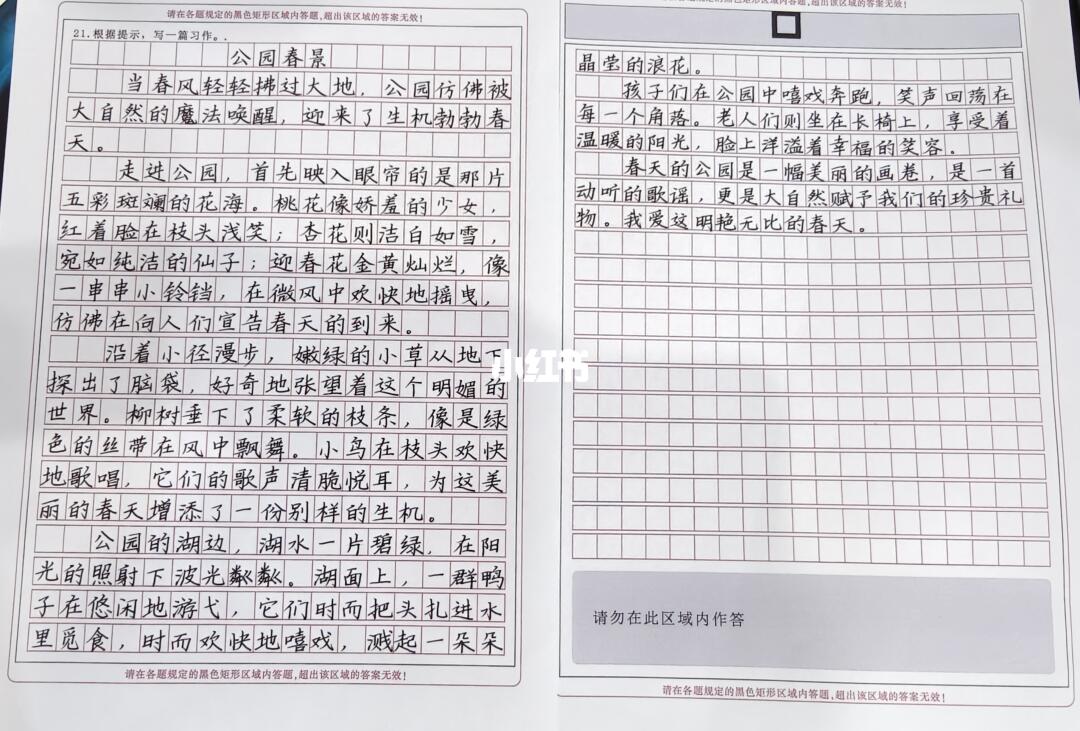 请在各题规定的黑色矩形区域内答题,超出该区域的答案无效!
21.根据提示，写一篇习作。.
公园春景
当春风轻轻拂过大地，公园仿佛被
大自然的魔法唤醒，迎来了生机勃勃春
天。
走进公园，首先映入眼帘的是那片
五彩斑斓的花海。桃花像娇羞的少女，
红着脸在枝头浅笑；杏花则洁白如雪，
宛如纯洁的仙子；迎春花金黄灿烂，像
一串串小铃铛，在微风中欢快地摇曳，
仿佛在向人们宣告春天的到来。
沿着小径漫步，嫩绿的小草从地下
探出了脑袋，好奇地张望着这个明媚的
世界。柳树垂下了柔软的枝条，像是绿
色的丝带在风中飘舞。小鸟在枝头欢快
地歌唱，它们的歌声清脆悦耳，为这美
丽的春天增添了一份别样的生机。
公园的湖边，湖水一片碧绿，在阳
光的照射下波光粼粼。湖面上，一群鸭
子在悠闲地游弋，它们时而把头扎进水
里觅食，时而欢快地嘻戏，溅起一朵朵
请在各题规定的黑色矩形区域内答题,超出该区域的答案无效!
请在各题规定的黑色矩形区域内答题,超出该区域的答案无效!
晶莹的浪花。
孩子们在公园中嘻戏奔跑，笑声回荡在
每一个角落。老人们则坐在长椅上，享受着
温暖的阳光，脸上洋溢着幸福的笑容。
春天的公园是一幅美丽的画卷，是一首
动听的歌谣，更是大自然赋予我们的珍贵礼
物。我爱这明艳无比的春天。
请勿在此区域内作答
请在各题规定的黑色矩形区域内答题,超出该区域的答案无效!
小红书